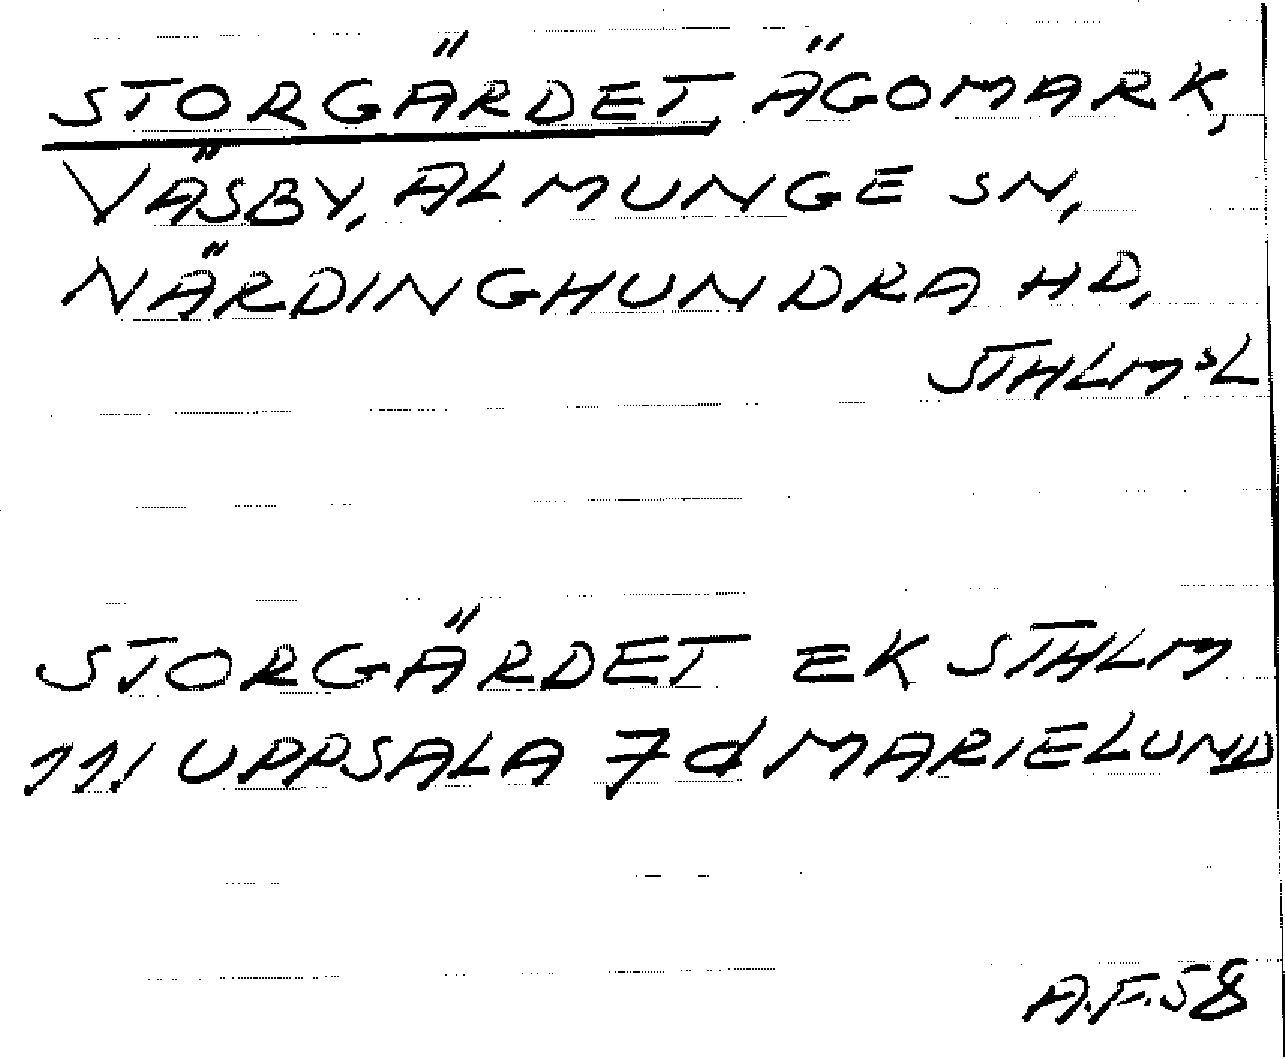 STORGÄRDET, ÄGOMARK,
VÄSBY, ALMUNGE SN,
NÄRDINGHUNDRA HD,
STHLMsL
STORGÄRDET EK STHLM
11I UPPSALA 7d MARIELUND
A.F.58